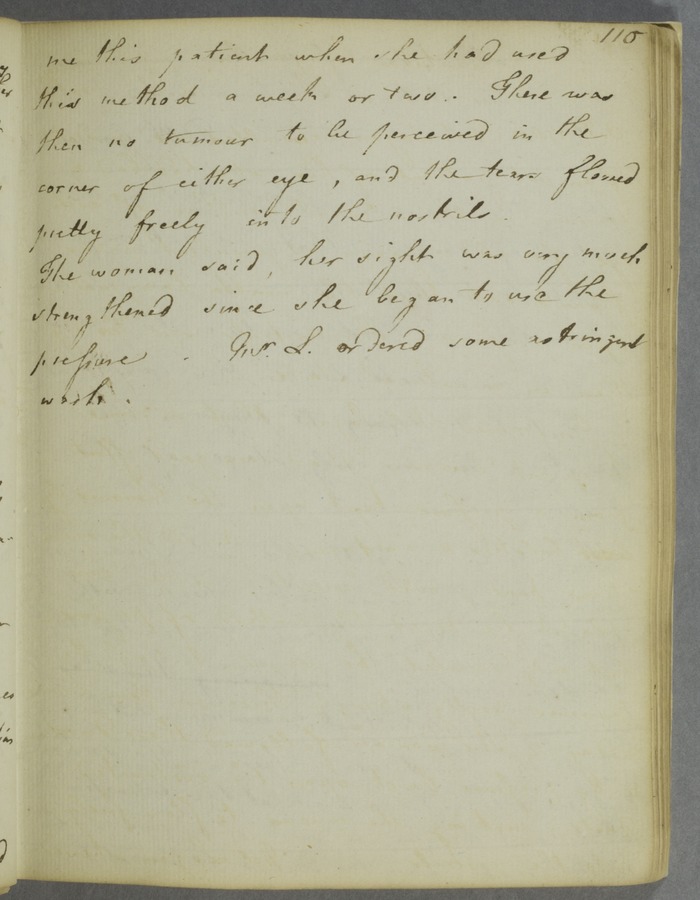 110
me this patient when she had used
this method a week or two. There was
then no tumour to be perceived in the
corner of either eye, and the tears flowed
pretty freely into the nostrils.
The woman said, her sight was very much
strengthened since she began to use the
preſsure. Mr. L. ordered some astringent
wash.